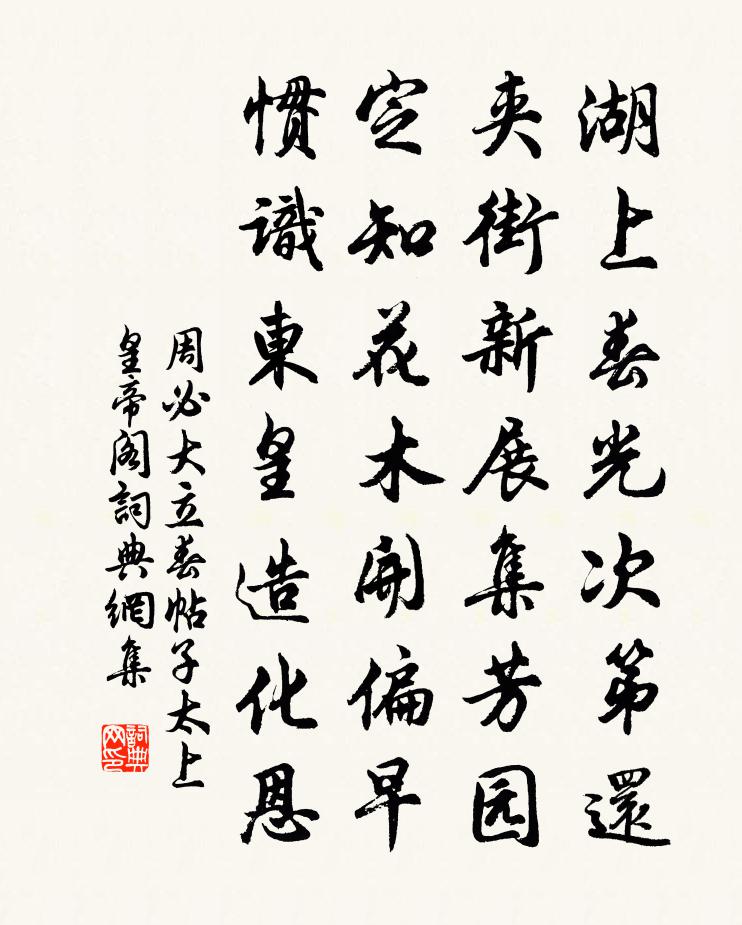 湖上春光次第還
夹街新展集芳园
定知花木開偏早
慣識東皇造化恩
周必大立春帖子太上
皇帝阁詞典網集
詞典网印